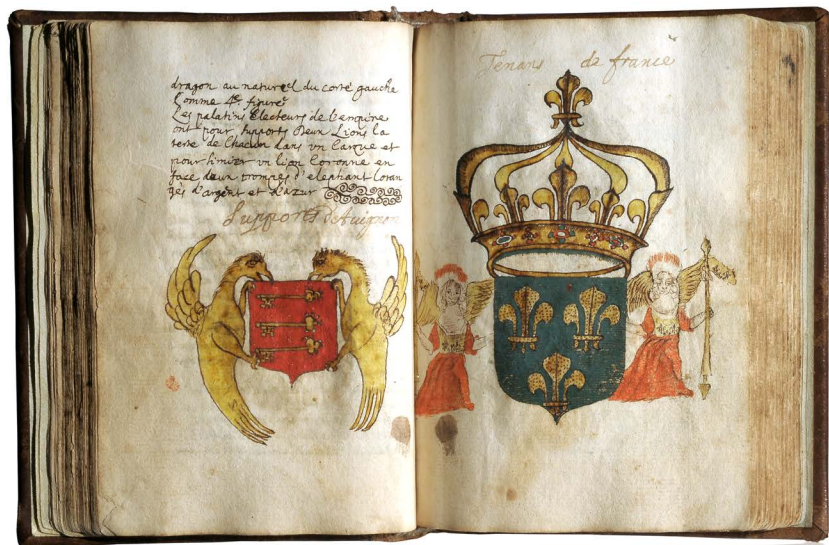 dragon au naturel du corté gauche
Comme 4e figure
Les palatins Electeurs de l'empire
ont pour supports Deux Lions la
teste de Chacun dans un Casque et
pour Simier un lion Coronne en
face deux trompes d'elephant
d'argent et d'azur
Supports d'Auignon
Tenans de france